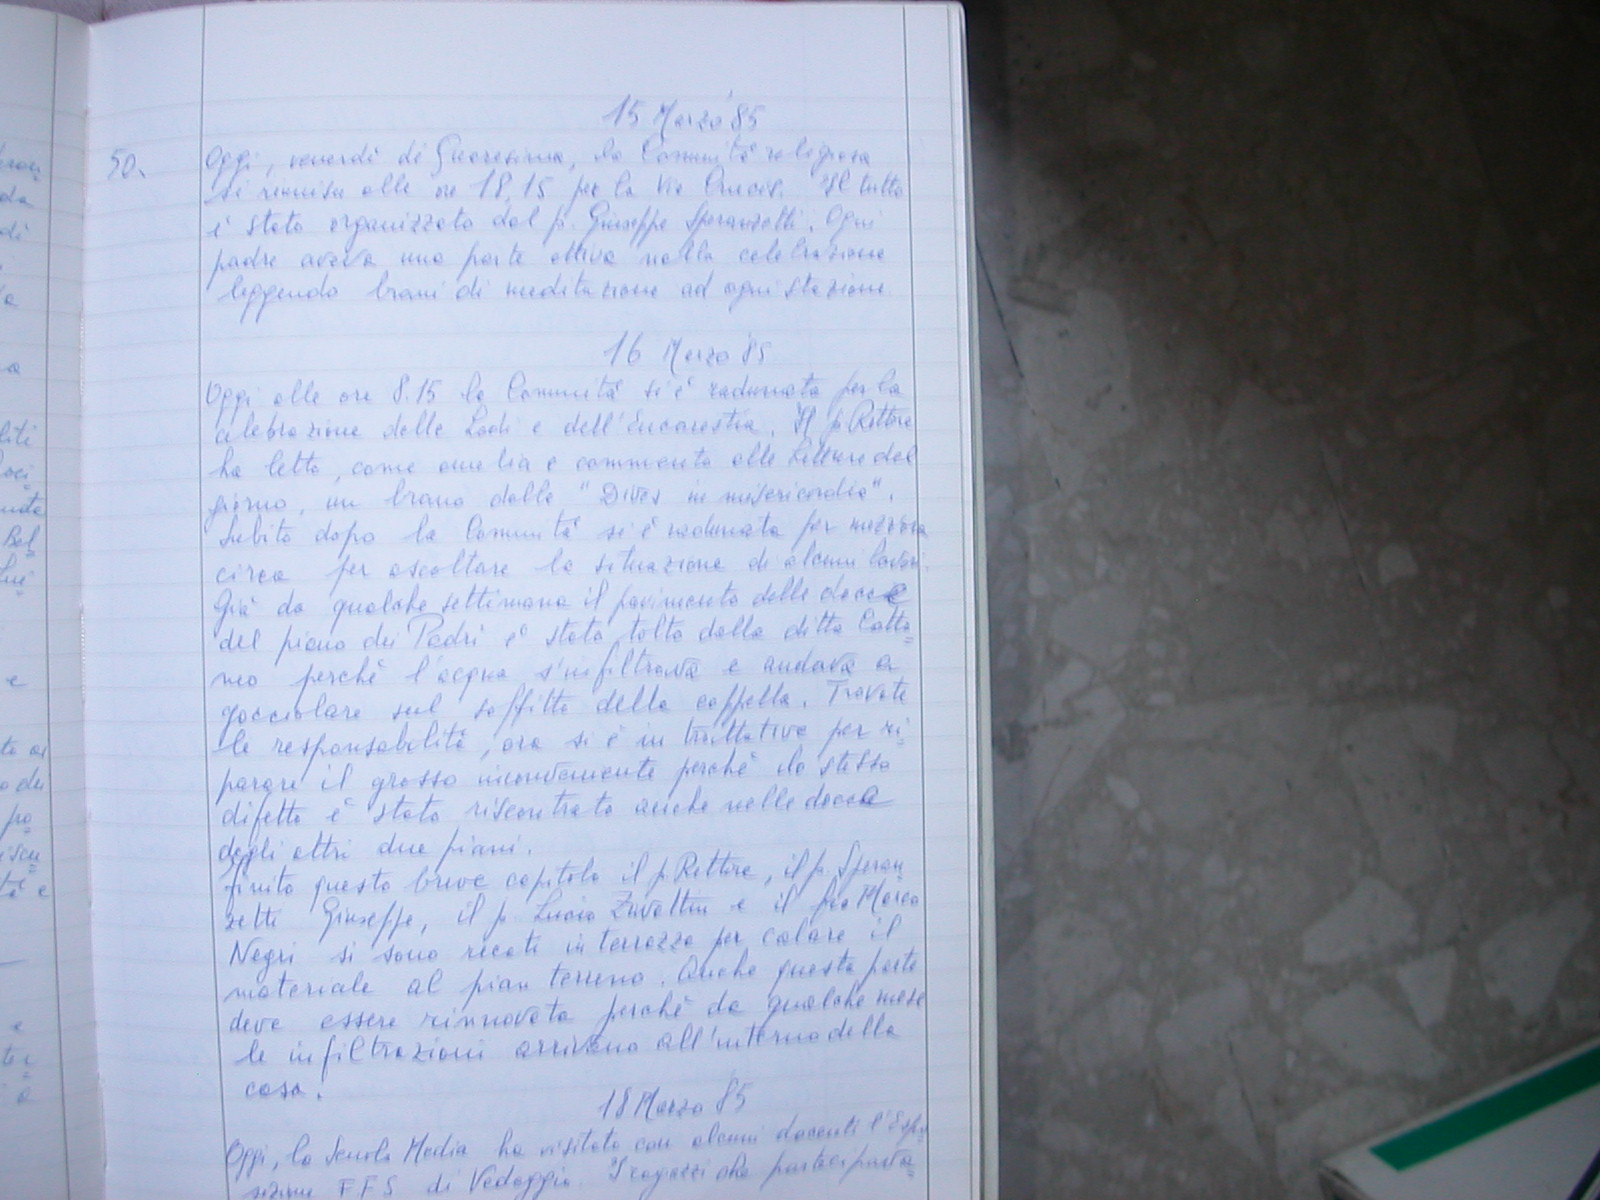 15 Marzo '85
50.
Oggi, venerdì di Quaresima, la Comunità religiosa
si riunisce alle ore 18,15 per la Via Crucis. Il tutto
è stato organizzato dal p. Giuseppe Speranzetti. Ogni
padre aveva una parte attiva nella celebrazione
leggendo brani di meditazione ad ogni stazione
16 Marzo '85
Oggi alle ore 8.15 la Comunità si è radunata per la
celebrazione delle Lodi e dell'Eucarestia. Il p. Rettore
ha letto, come omelia e commento alle letture del
giorno, un brano dalla "Dives in misericordia".
Subito dopo la Comunità si è radunata per mezz'ora
circa per ascoltare la situazione di alcuni lavori.
Già da qualche settimana il pavimento delle docce
del piano dei Padri è stato tolto dalla ditta Catta=
neo perchè l'acqua s'infiltrava e andava a
gocciolare sul soffitto della cappella. Trovate
le responsabilità, ora si è in trattative per ri=
parare il grosso inconveniente perchè lo stesso
difetto è stato riscontrato anche nelle docce
degli altri due piani.
Finito questo breve capitolo il p. Rettore, il p. Speran=
zetti Giuseppe, il p. Lucio Zavattin e il fra Marco
Negri si sono recati in terrazzo per calare il
materiale al pian terreno. Anche questa parte
deve essere rinnovata perchè da qualche mese
le infiltrazioni arrivano all'interno della
casa.
18 Marzo '85
Oggi, la Scuola Media ha visitato con alcuni docenti l'Espo=
sizione FFS di Vedeggio. I ragazzi che partecipava=